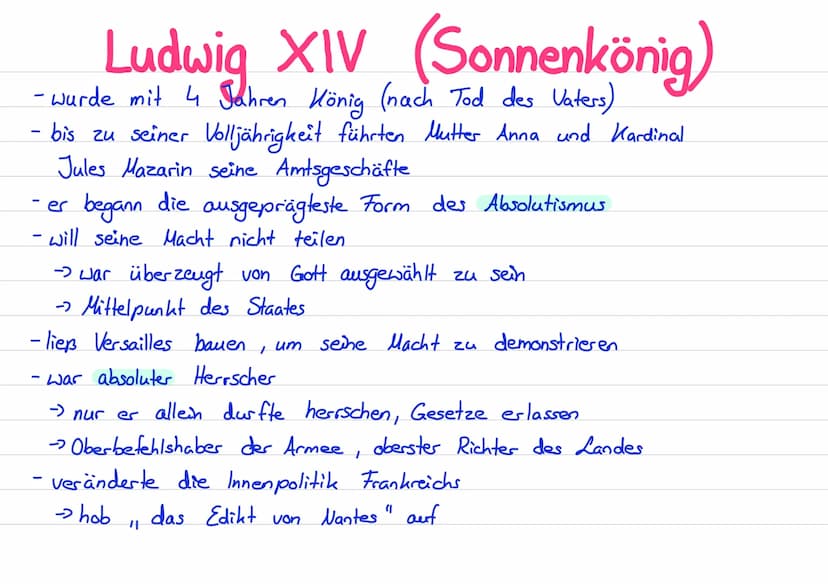 Ludwig XIV (Sonnenkönig)
- wurde mit 4 Jahren König (nach Tod des Vaters)
- bis zu seiner Volljährigkeit führten Mutter Anna und Kardinal
Jules Mazarin seine Amtsgeschäfte
- er begann die ausgeprägteste Form des Absolutismus
- will seine Macht nicht teilen
→ war überzeugt von Gott ausgewählt zu sein
→ Mittelpunkt des Staates
- ließ Versailles bauen, um seine Macht zu demonstrieren
- war absoluter Herrscher
→ nur er allein durfte herrschen, Gesetze erlassen
→ Oberbefehlshaber der Armee, oberster Richter des Landes
- veränderte die Innenpolitik Frankreichs
→ hob „das Edikt von Nantes" auf